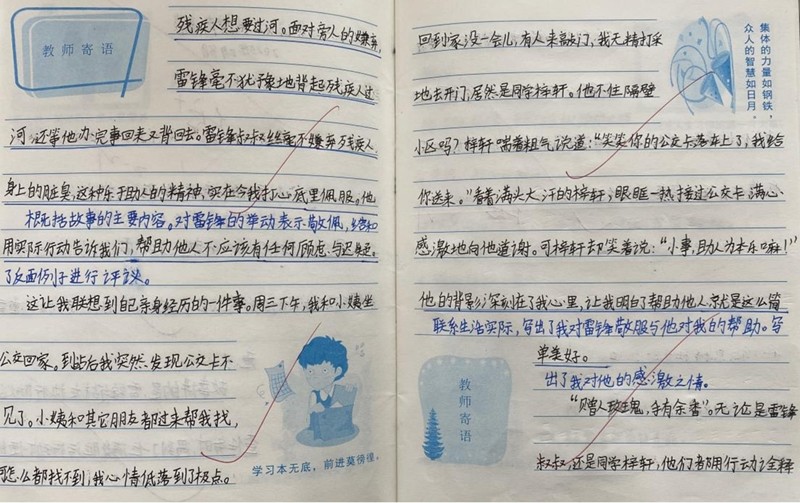 教师寄语
残疾人想要过河。面对旁人的嫌弃,
雷锋毫不犹豫地背起残疾人过
河,还等他办完事回来又背回去。雷锋叔叔丝毫不嫌弃残疾人
身上的脏臭,这种乐于助人的精神,实在令我打心底里佩服。他
概括故事的主要内容。对雷锋的举动表示敬佩,结合和
用实际行动告诉我们,帮助他人不应该有任何顾虑与迟疑。
了反面例子进行评议。
这让我联想到自己亲身经历的一件事。周三下午,我和小姨坐
公交回家。到站后我突然发现公交卡不
见了。小姨和其它朋友都过来帮我找,
怎么都找不到,我心情低落到了极点。
学习本无底,前进莫徬徨。
回到家没一会儿,有人来敲门,我无精打采
地去开门,居然是同学梓轩。他不住隔壁
小区吗?梓轩喘着粗气说道:“笑笑你的公交卡落车上了,我给
你送来。”看着满头大汗的梓轩,眼眶一热接过公交卡满心
感激地向他道谢。可梓轩却笑着说:“小事,助人为本乐嘛!”
他的背影深刻在了我心里,让我明白了帮助他人就是这么简
联系生活实际,写出了我对雷锋敬服与他对我的帮助。写
单美好。
出了我对他的感激之情。
“赠人玫瑰,手有余香”。无论是雷锋
叔叔,还是同学梓轩,他们都用行动诠释
集体的力量如钢铁,
众人的智慧如日月。
教师寄语